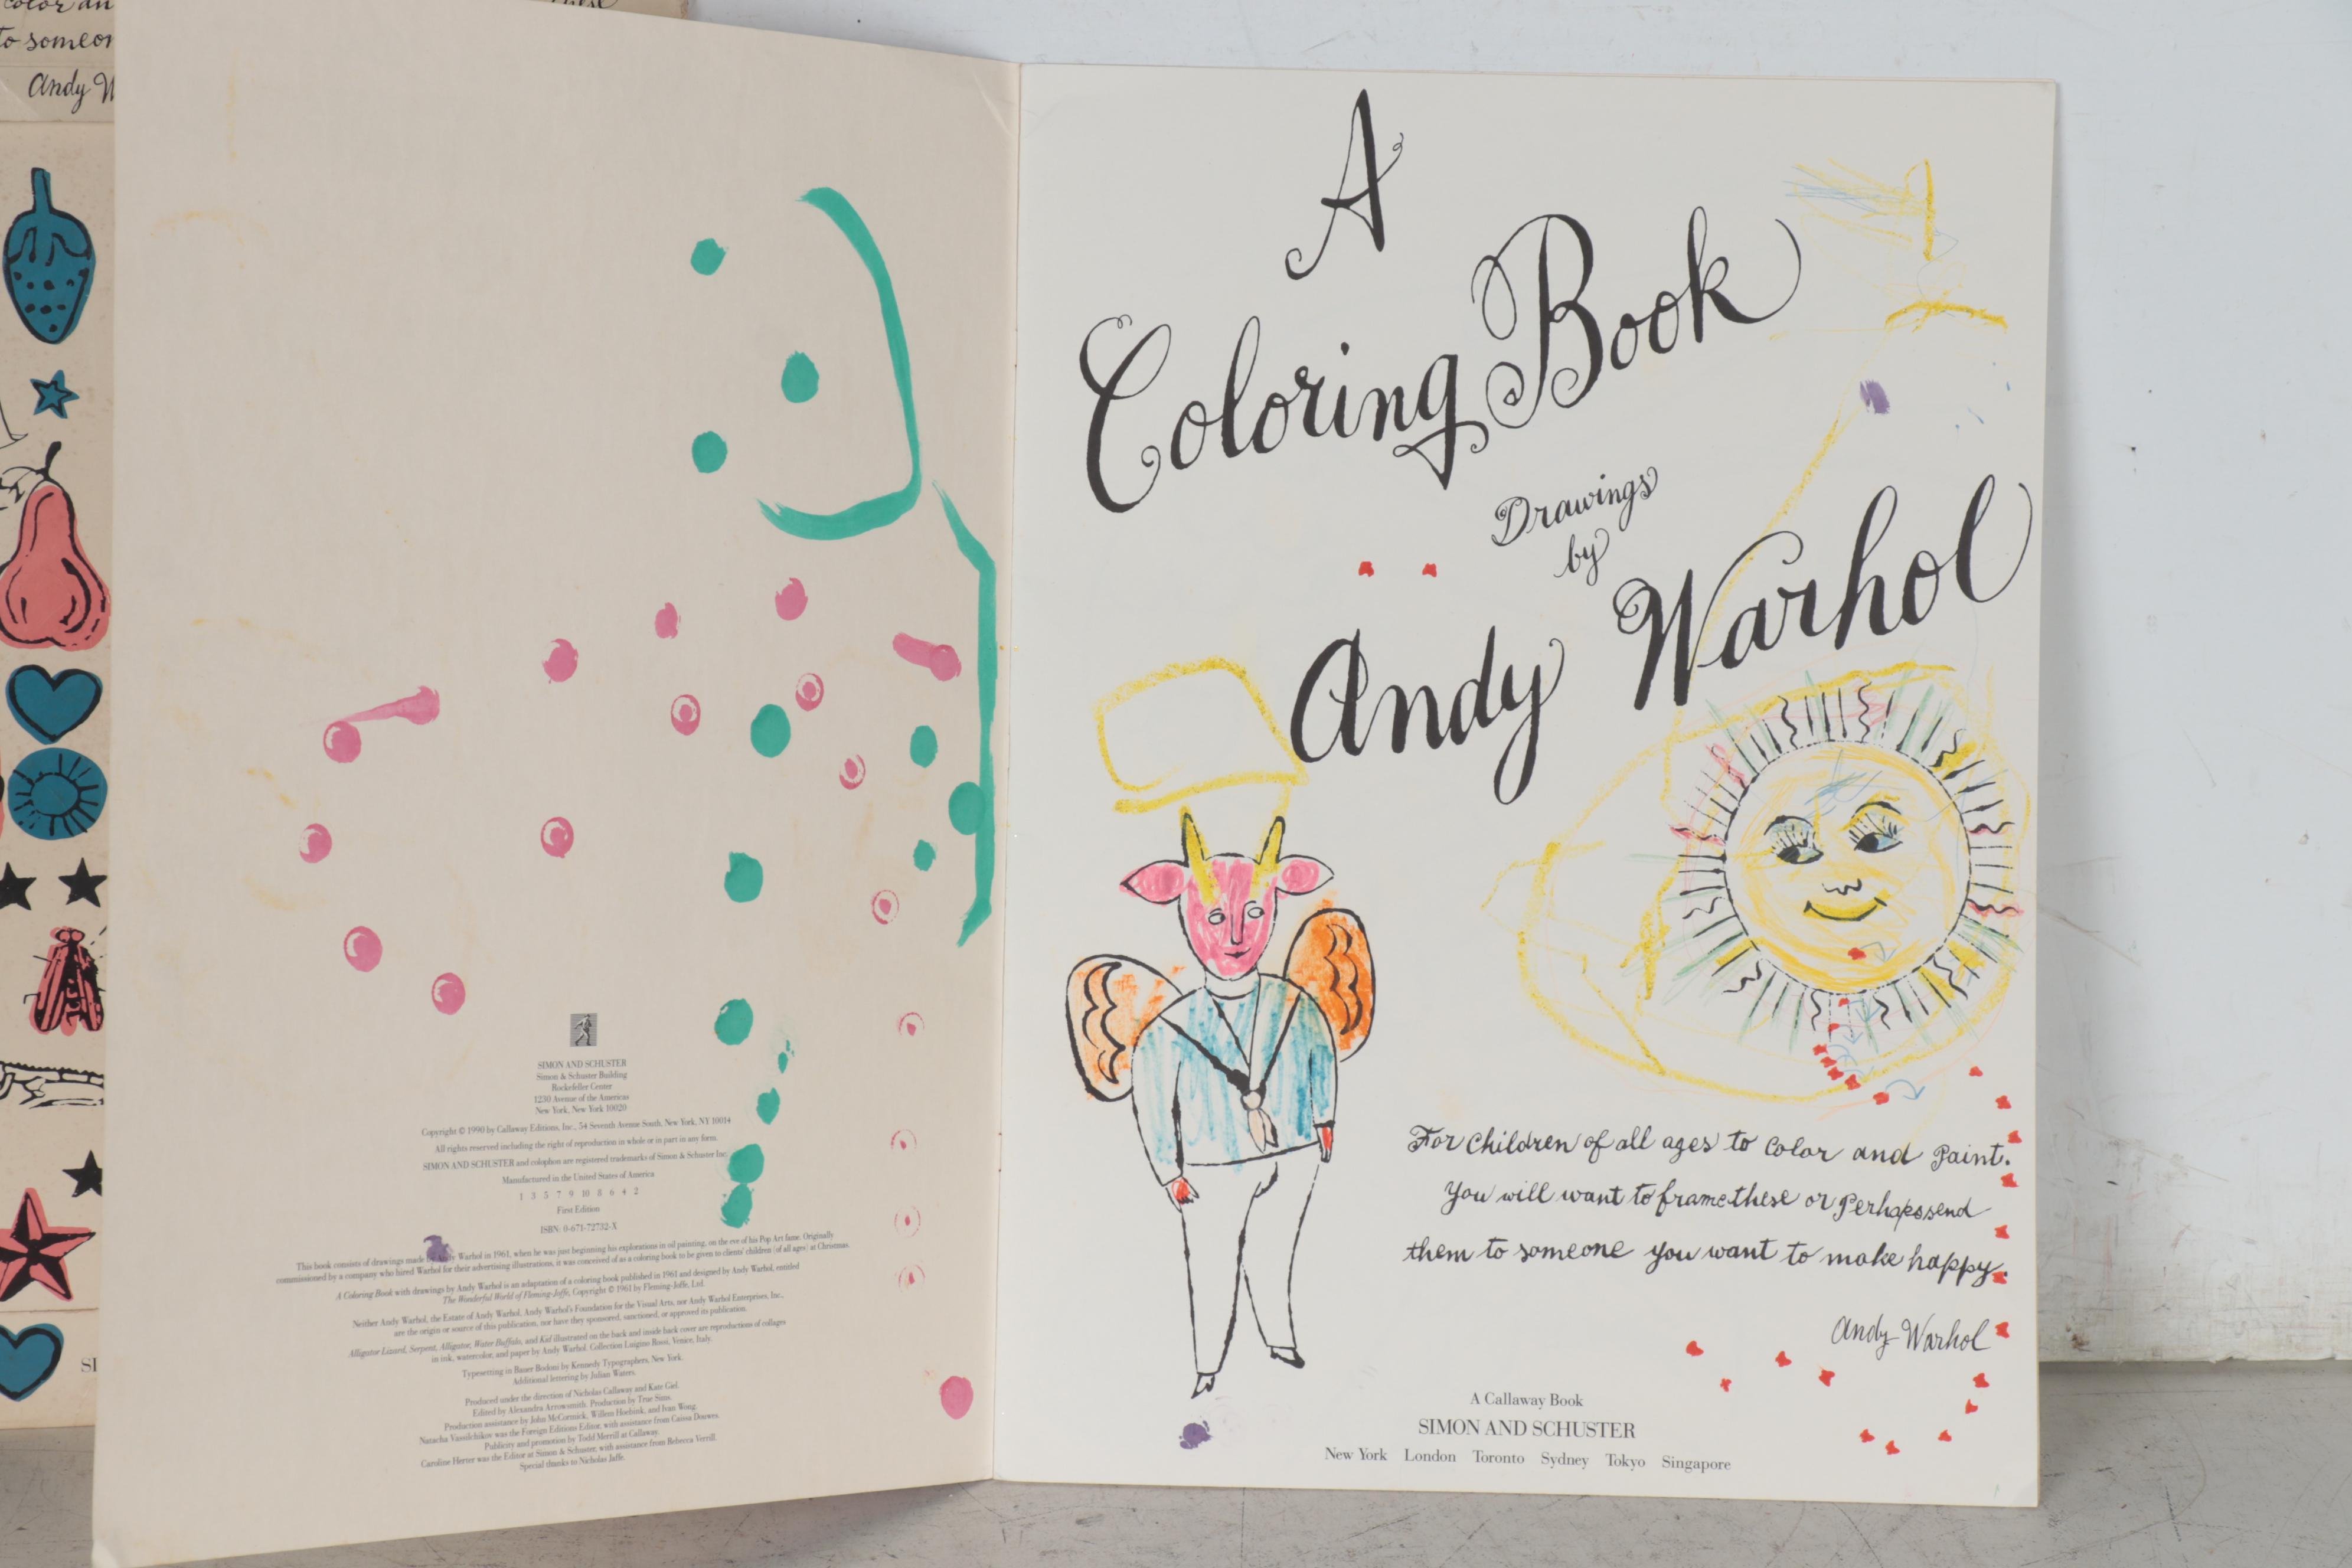 color an
to someon
Andy W
SI
SIMON AND SCHUSTER
Simon & Schuster Building
Rockefeller Center
1230 Avenue of the Americas
New York, New York 10020
Copyright © 1990 by Callaway Editions, Inc., 54 Seventh Avenue South, New York, NY 10014
All rights reserved including the right of reproduction in whole or in part in any form.
SIMON AND SCHUSTER and colophon are registered trademarks of Simon & Schuster Inc.
Manufactured in the United States of America
1 3 5 7 9 10 8 6 4 2
First Edition
ISBN: 0-671-72732-X
This book consists of drawings made by Andy Warhol in 1961, when he was just beginning his explorations in oil painting, on the eve of his Pop Art fame. Originally
commissioned by a company who hired Warhol for their advertising illustrations, it was conceived of as a coloring book to be given to clients' children (of all ages) at Christmas.
A Coloring Book with drawings by Andy Warhol is an adaptation of a coloring book published in 1961 and designed by Andy Warhol, entitled
The Wonderful World of Fleming-Joffe, Copyright © 1961 by Fleming-Joffe, Ltd.
Neither Andy Warhol, the Estate of Andy Warhol, Andy Warhol's Foundation for the Visual Arts, nor Andy Warhol Enterprises, Inc.,
are the origin or source of this publication, nor have they sponsored, sanctioned, or approved its publication.
Alligator Lizard, Serpent, Alligator, Water Buffalo, and Kid illustrated on the back and inside back cover are reproductions of collages
in ink, watercolor, and paper by Andy Warhol. Collection Luigino Rossi, Venice, Italy.
Typesetting in Bauer Bodoni by Kennedy Typographers, New York.
Additional lettering by Julian Waters.
Produced under the direction of Nicholas Callaway and Kate Giel.
Edited by Alexandra Arrowsmith. Production by True Sims.
Production assistance by John McCormick, Willem Hoebink, and Ivan Wong.
Natacha Vassilchikov was the Foreign Editions Editor, with assistance from Caissa Douwes.
Publicity and promotion by Todd Merrill at Callaway.
Caroline Herter was the Editor at Simon & Schuster, with assistance from Rebecca Verrill.
Special thanks to Nicholas Jaffe.
A
Coloring Book
Drawings
by
Andy Warhol
For children of all ages to color and paint.
You will want to frame these or Perhaps send
them to someone you want to make happy.
Andy Warhol
A Callaway Book
SIMON AND SCHUSTER
New York London Toronto Sydney Tokyo Singapore